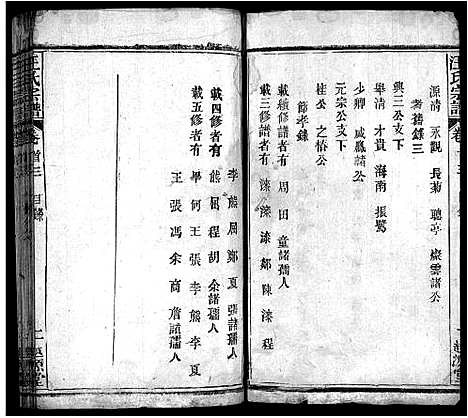 汪氏宗譜
卷首
源清 永觀 長菊 聽亭 燦雲諸公
耆舊錄三
興三公支下
舉清 才貴 海南 振鷺
少卿 咸鳳諸公
元宗公支下
桂公 之椿公
節孝錄
載續修者有 周 田 童諸孺人
載三修譜者有 漆 漆 鄒 陳 漆 程
李 熊 周 鄭 夏 張諸孺人
載四修者有 熊 周 程 胡 余諸孺人
載五修者有 畢 何 王 張 李 熊 李 夏
王 張 馮 余 商 詹諸孺人
汪氏宗譜
卷首三
目錄
越源堂